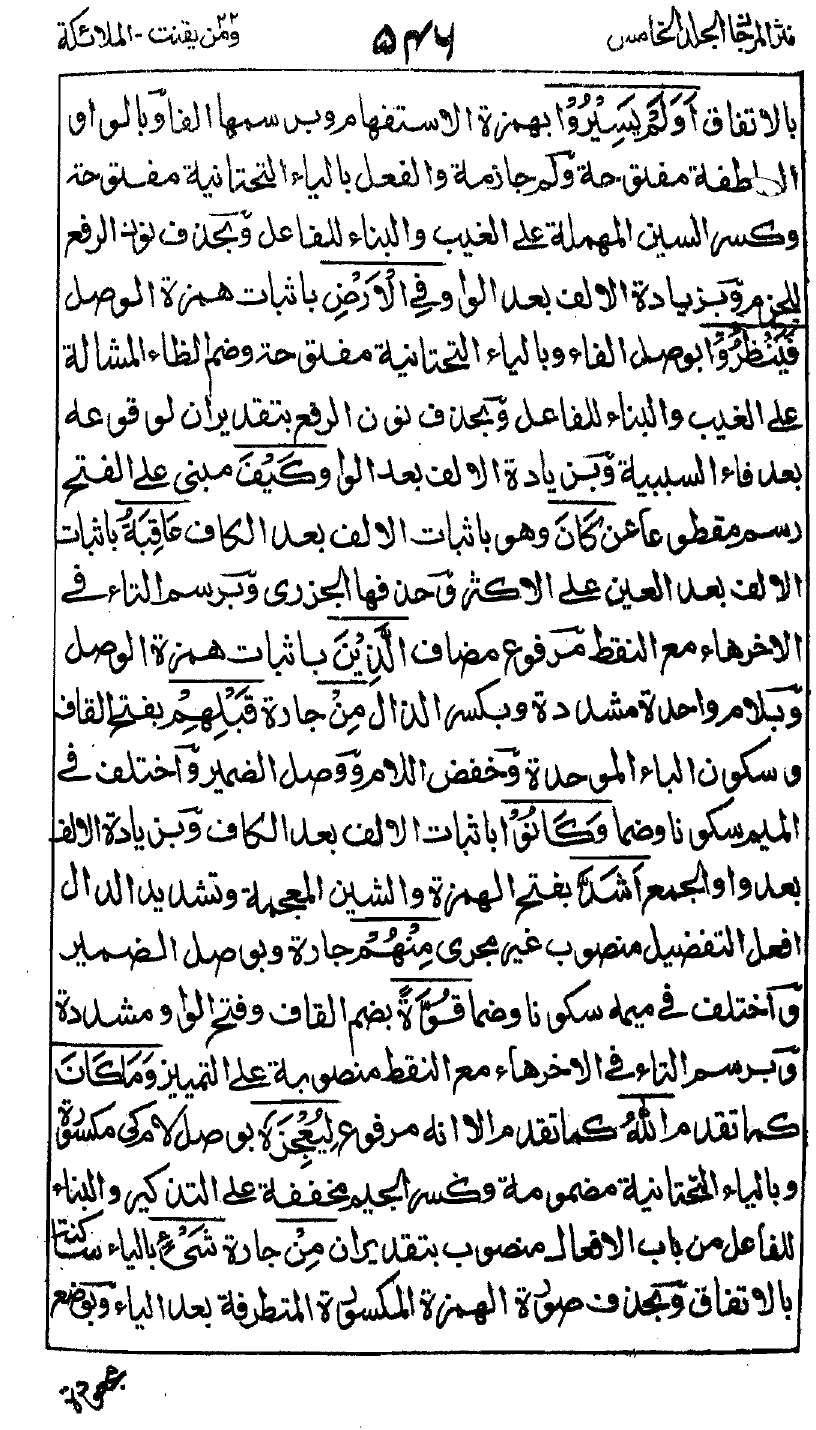 نثر المرجان المجلد الخامس ٥٤٦ ومن يقنت ٢٢ - الملائكة
بالاتفاق اَوَلَمْ يَسِيْرُوْا بهمزة الاستفهام وبرسمها الفا وبالواو
العاطفة مفتوحة ولم جازمة والفعل بالياء التحتانية مفتوحة
وكسر السين المهملة على الغيب والبناء للفاعل وبحذف نون الرفع
للجزم وبزيادة الالف بعد الواو فِي الْاَرْضِ باثبات همزة الوصل
فَيَنْظُرُوْا بوصل الفاء وبالياء التحتانية مفتوحة وضم الظاء المشالة
على الغيب والبناء للفاعل وبحذف نون الرفع بتقدير ان لوقوعه
بعد فاء السببية وبزيادة الالف بعد الواو كَيْفَ مبنى على الفتح
رسم مقطوعا عن كَانَ وهو باثبات الالف بعد الكاف عَاقِبَةُ باثبات
الالف بعد العين على الاكثر وحذفها الجزرى وبرسم التاء في
الاخرهاء مع النقط مرفوع مضاف الَّذِيْنَ باثبات همزة الوصل
وبلام واحدة مشددة وبكسر الذال مِنْ جارة قَبْلِهِمْ بفتح القاف
وسكون الباء الموحدة وخفض اللام ووصل الضمير واختلف في
الميم سكونا وضما وَكَانُوْا باثبات الالف بعد الكاف وبزيادة الالف
بعد واو الجمع اَشَدَّ بفتح الهمزة والشين المعجمة وتشديد الدال
افعل التفضيل منصوب غير مجرى مِنْهُمْ جارة وبوصل الضمير
واختلف في ميمه سكونا وضما قُوَّةً بضم القاف وفتح الواو مشددة
وبرسم التاء في الاخرهاء مع النقط منصوبة على التمييز وَمَا كَانَ
كما تقدم اللهُ كما تقدم الا انه مرفوع لِيُعْجِزَهُ بوصل لام كى مكسورة
وبالياء التحتانية مضمومة وكسر الجيم مخففة على التذكير والبناء
للفاعل من باب الافعال منصوب بتقدير ان مِنْ جارة شَيْءٍ بالياء ساكنة
بالاتفاق وبحذف صورة الهمزة المكسورة المتطرفة بعد الياء وبوضع